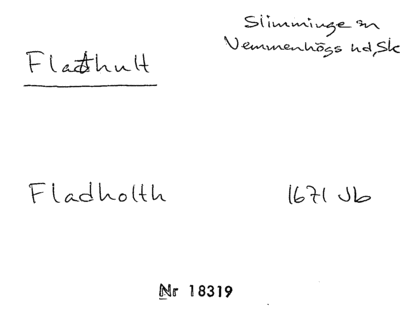 Slimminge sn
Vemmenhögs hd, Sk
Flathult
Fladholth 1671 Jb
Nr 18319